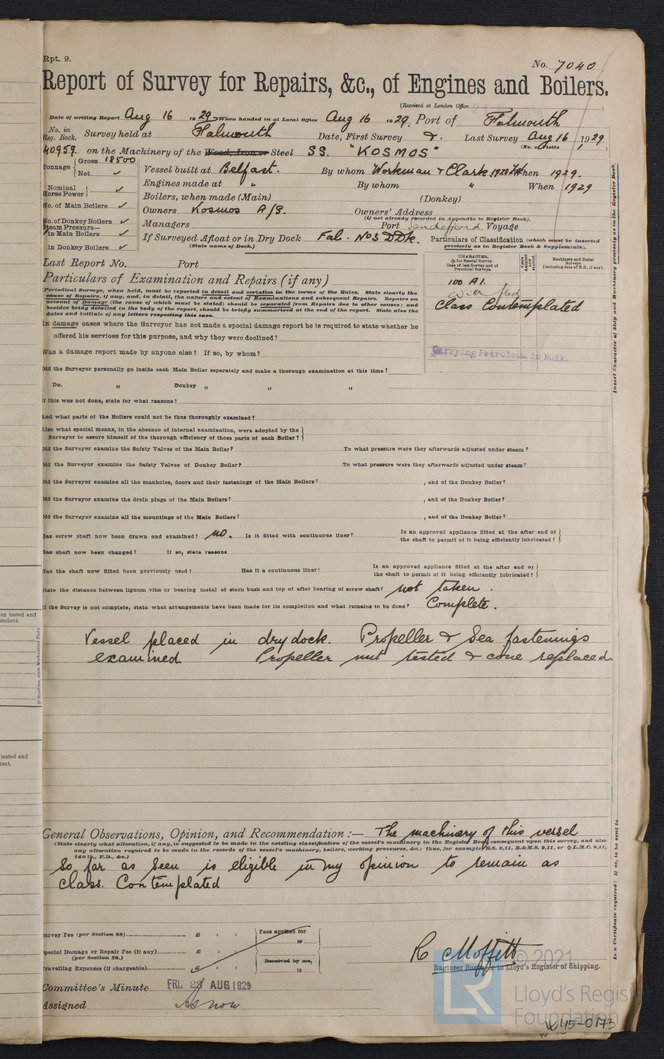 Rpt. 9.
No. 7040
Report of Survey for Repairs, &c., of Engines and Boilers.
(Received at London Office
Date of writing Report Aug 16 1929 When handed in at Local Office Aug 16 1929. Port of Falmouth
No. in Reg. Book. Survey held at Falmouth Date, First Survey Last Survey Aug 16 1929
40959 on the Machinery of the Wood, Iron or Steel SS. "KOSMOS"
Tonnage Gross 18500 Net Vessel built at Belfast. By whom Workman & Clark When 1929.
Nominal Horse Power Engines made at " By whom " When 1929
No. of Main Boilers Boilers, when made (Main) (Donkey)
Owners Kosmos A/S. Owners' Address
(if not already recorded in Appendix to Register Book).
No. of Donkey Boilers Managers Port Sandefjord Voyage
Steam Pressure— in Main Boilers If Surveyed Afloat or in Dry Dock Fal. No 3 DDk.
(State name of Dock.)
in Donkey Boilers
Particulars of Classification (which must be inserted precisely as in Register Book & Supplements).
Last Report No. Port
CHARACTER.
Machinery and Boiler Surveys
Particulars of Examination and Repairs (if any)
100 A1.
Class Contemplated
Carrying Petroleum in Bulk
Periodical Surveys, when held, must be reported in detail and seriatim in the terms of the Rules. State clearly the
cause of Repairs, if any, and, in detail, the nature and extent of Examinations and subsequent Repairs. Repairs on
account of Damage (the cause of which must be stated) should be separated from Repairs due to other causes; and
besides being detailed in the body of the report, should be briefly summarised at the end of the report. State also the
dates and initials of any letters respecting this case.
In damage cases where the Surveyor has not made a special damage report he is required to state whether he
offered his services for this purpose, and why they were declined?
Was a damage report made by anyone else? If so, by whom?
Did the Surveyor personally go inside each Main Boiler separately and make a thorough examination at this time?
Do. " Donkey " " "
If this was not done, state for what reasons?
And what parts of the Boilers could not be thus thoroughly examined?
Also what special means, in the absence of internal examination, were adopted by the
Surveyor to assure himself of the thorough efficiency of those parts of each Boiler?
Did the Surveyor examine the Safety Valves of the Main Boiler? To what pressure were they afterwards adjusted under steam?
Did the Surveyor examine the Safety Valves of Donkey Boiler? To what pressure were they afterwards adjusted under steam?
Did the Surveyor examine all the manholes, doors and their fastenings of the Main Boilers? , and of the Donkey Boiler?
Did the Surveyor examine the drain plugs of the Main Boilers? , and of the Donkey Boiler?
Did the Surveyor examine all the mountings of the Main Boilers? , and of the Donkey Boiler?
Has screw shaft now been drawn and examined? no. Is it fitted with continuous liner? Is an approved appliance fitted at the after end of the shaft to permit of it being efficiently lubricated?
Has shaft now been changed? If so, state reasons
Has the shaft now fitted been previously used? Has it a continuous liner? Is an approved appliance fitted at the after end of the shaft to permit of it being efficiently lubricated?
State the distance between lignum vitæ or bearing metal of stern bush and top of after bearing of screw shaft? not taken.
If the Survey is not complete, state what arrangements have been made for its completion and what remains to be done? Complete.
Vessel placed in dry dock. Propeller & Sea fastenings
examined. Propeller nut tested & cone replaced
General Observations, Opinion, and Recommendation:— The machinery of this vessel
(State clearly what alteration, if any, is suggested to be made in the existing classification of the vessel's machinery in the Register Book consequent upon this survey, and also
any alteration required to be made in the records of the vessel's machinery, boilers, working pressures, &c.; thus, for example, B.S. 9,11, B.&M.S. 9,11, or L.M.C. 9,11,
So far as seen is eligible in my opinion to remain as
class. Contemplated
Survey Fee (per Section 28) £ : : Fees applied for
19
Special Damage or Repair Fee (if any) £ : :
(per Section 28.)
Received by me,
Travelling Expenses (if chargeable) £ : : 19
R Moffitt
Engineer Surveyor to Lloyd's Register of Shipping.
Committee's Minute FRI. 23 AUG 1929
Assigned As now
© 2021
LR
Lloyd's Register
Foundation
W45-0173
Insert Character of Ship and Machinery precisely as in the Register Book.
Is a Certificate required? If so, to be sent to